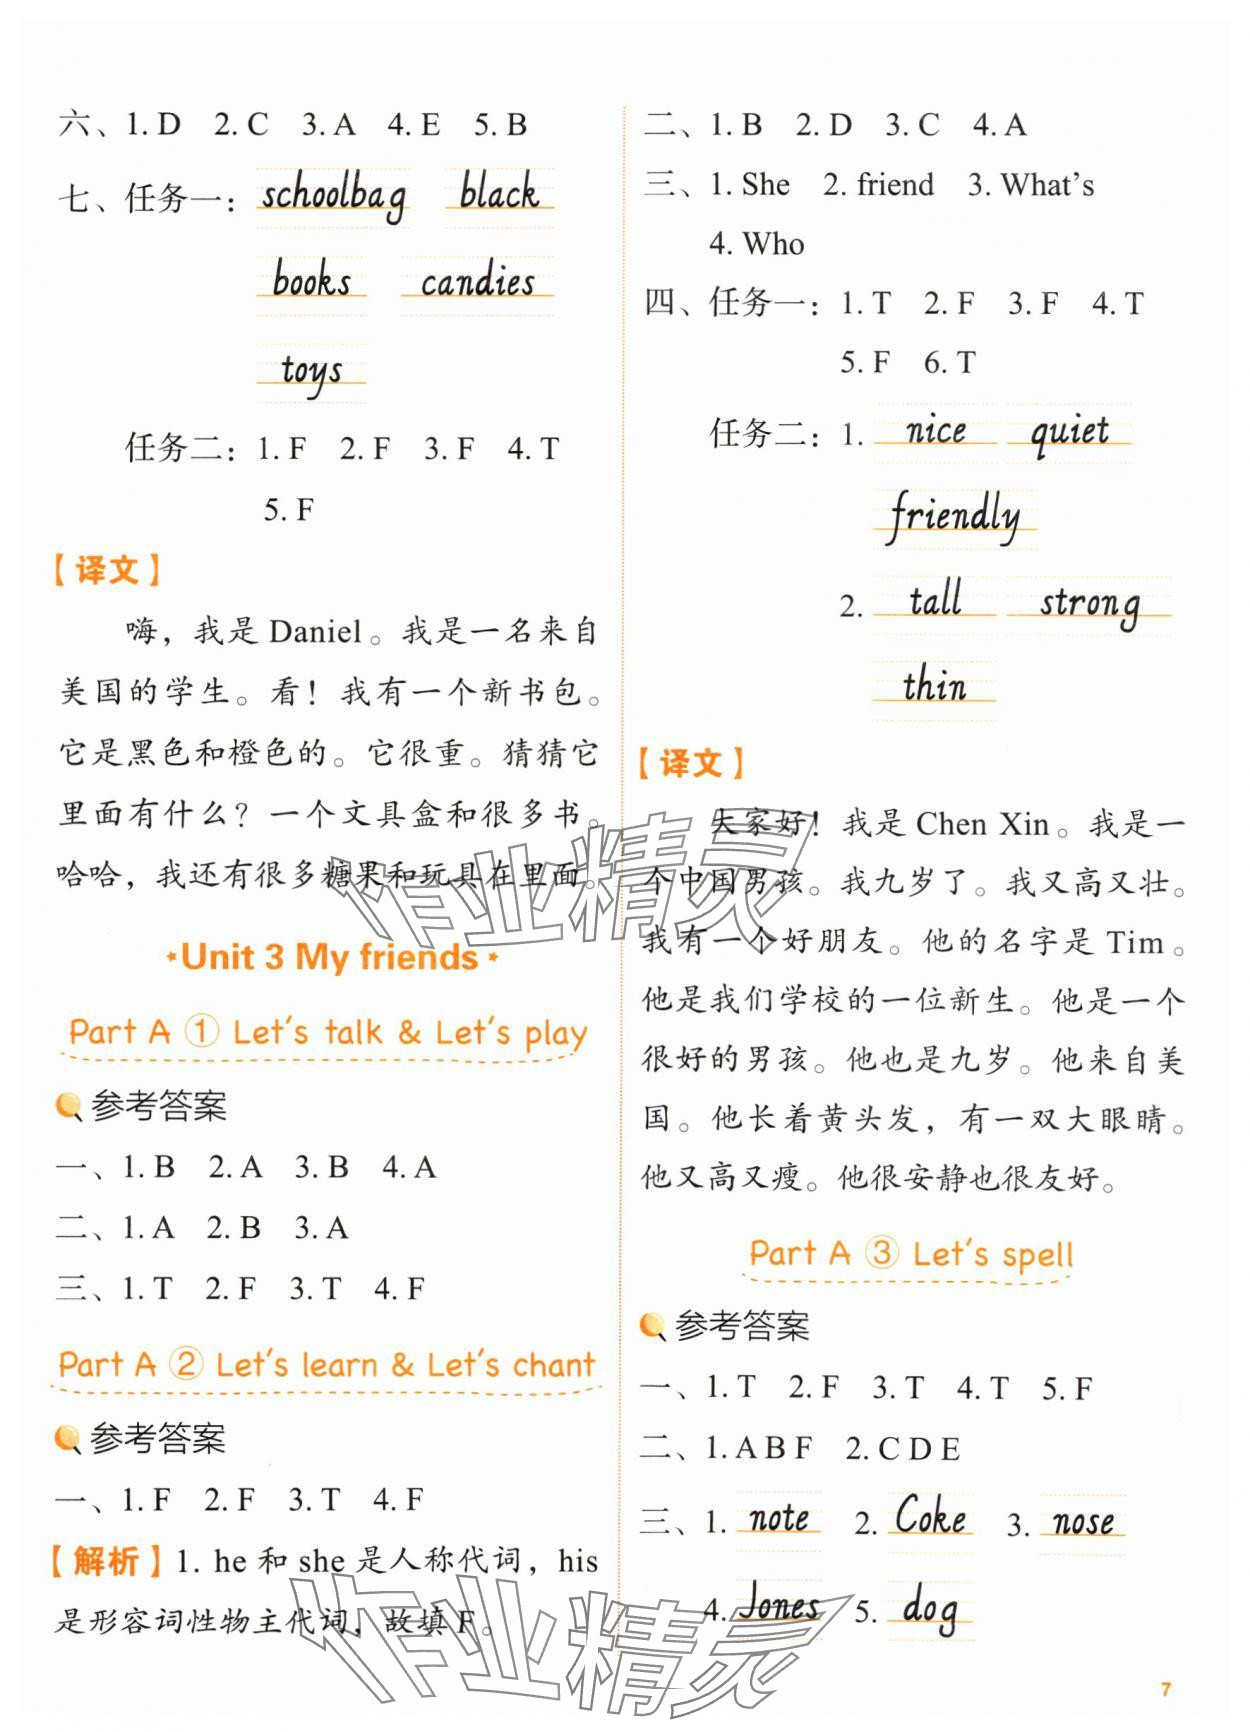 六、1. D 2. C 3. A 4. E 5. B
七、任务一：schoolbag black
books candies
toys
任务二：1. F 2. F 3. F 4. T
5. F
【译文】
嗨，我是 Daniel。我是一名来自
美国的学生。看！我有一个新书包。
它是黑色和橙色的。它很重。猜猜它
里面有什么？一个文具盒和很多书。
哈哈，我还有很多糖果和玩具在里面。
Unit 3 My friends
Part A ① Let's talk & Let's play
参考答案
一、1. B 2. A 3. B 4. A
二、1. A 2. B 3. A
三、1. T 2. F 3. T 4. F
Part A ② Let's learn & Let's chant
参考答案
一、1. F 2. F 3. T 4. F
【解析】1. he 和 she 是人称代词，his
是形容词性物主代词，故填 F。
二、1. B 2. D 3. C 4. A
三、1. She 2. friend 3. What's
4. Who
四、任务一：1. T 2. F 3. F 4. T
5. F 6. T
任务二：1. nice quiet
friendly
2. tall strong
thin
【译文】
大家好！我是 Chen Xin。我是一
个中国男孩。我九岁了。我又高又壮。
我有一个好朋友。他的名字是 Tim。
他是我们学校的一位新生。他是一个
很好的男孩。他也是九岁。他来自美
国。他长着黄头发，有一双大眼睛。
他又高又瘦。他很安静也很友好。
Part A ③ Let's spell
参考答案
一、1. T 2. F 3. T 4. T 5. F
二、1. A B F 2. C D E
三、1. note 2. Coke 3. nose
4. Jones 5. dog
7
作业精灵
作业精灵